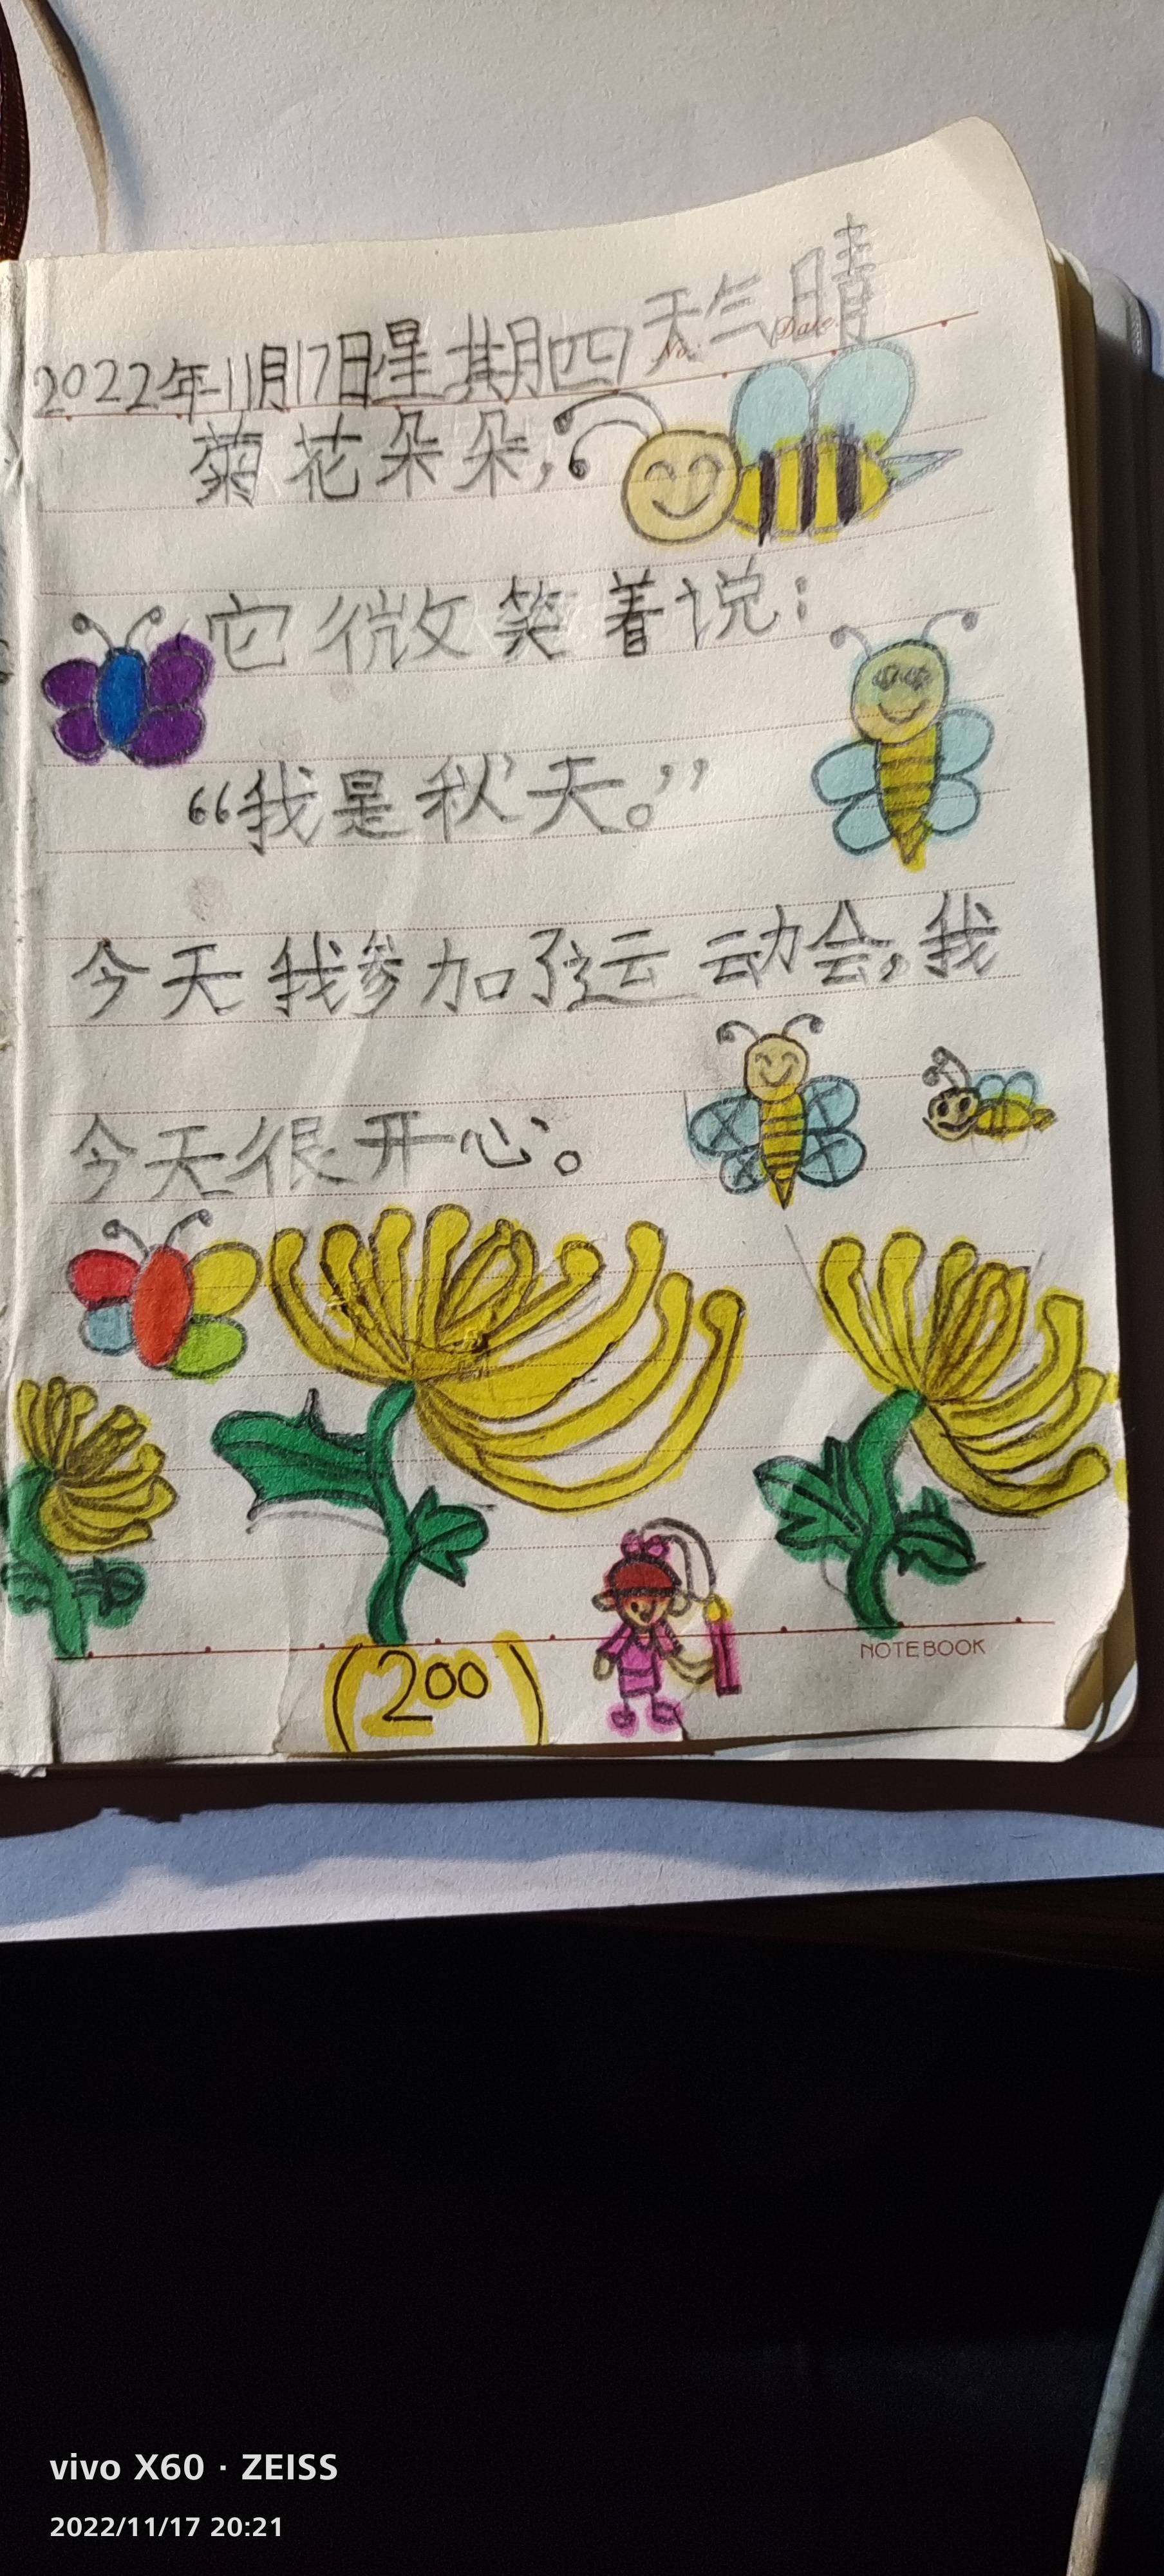 2022年11月17日星期四天气晴
No.
Date.
菊花朵朵,
它微笑着说:
“我是秋天。”
今天我参加了运动会,我
今天很开心。
NOTEBOOK
(200)
vivo X60 · ZEISS
2022/11/17 20:21